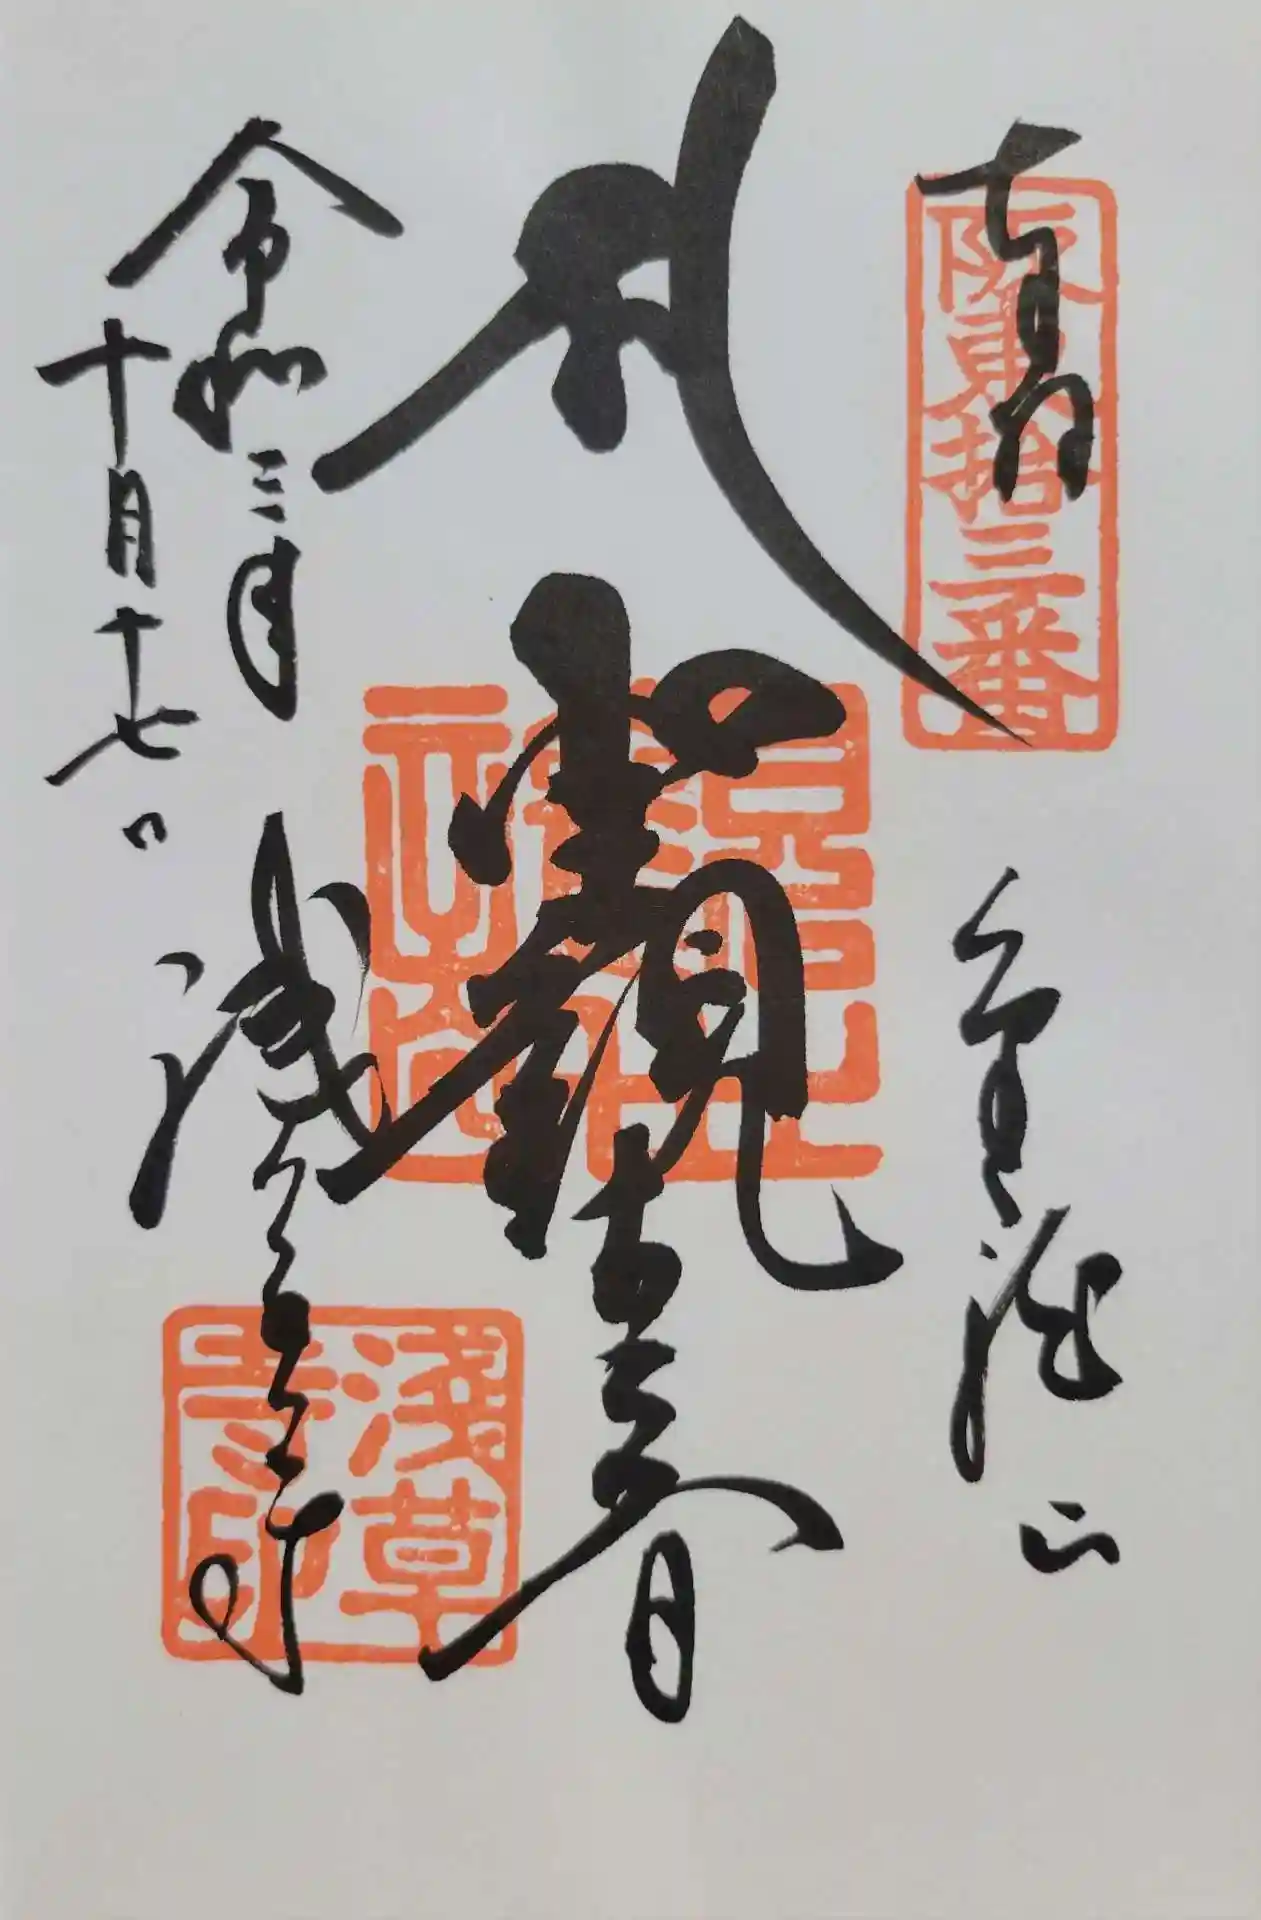 奉拝
阪東拾三番
金龍山
聖観世音
令和三年
十月十七日
浅草寺
淺草
寺印